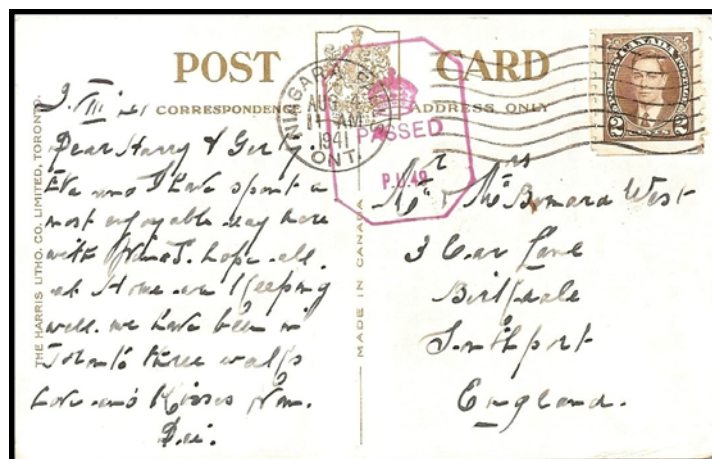 POST CARD
CORRESPONDENCE ADDRESS ONLY
NIAGARA
AUG 4
11 AM
1941
ONT.
PASSED
P.U.49
CANADA POSTAGE
2 CENTS 2
THE HARRIS LITHO. CO. LIMITED, TORONTO.
MADE IN CANADA
Dear Harry &
and I have spent a
most enjoyable day here
with hope all
at Home are Keeping
well. we have been in
Toronto three
Love and Kisses from
Mr & Mrs Bernard West
3 Lane
Birkdale
Southport
England.